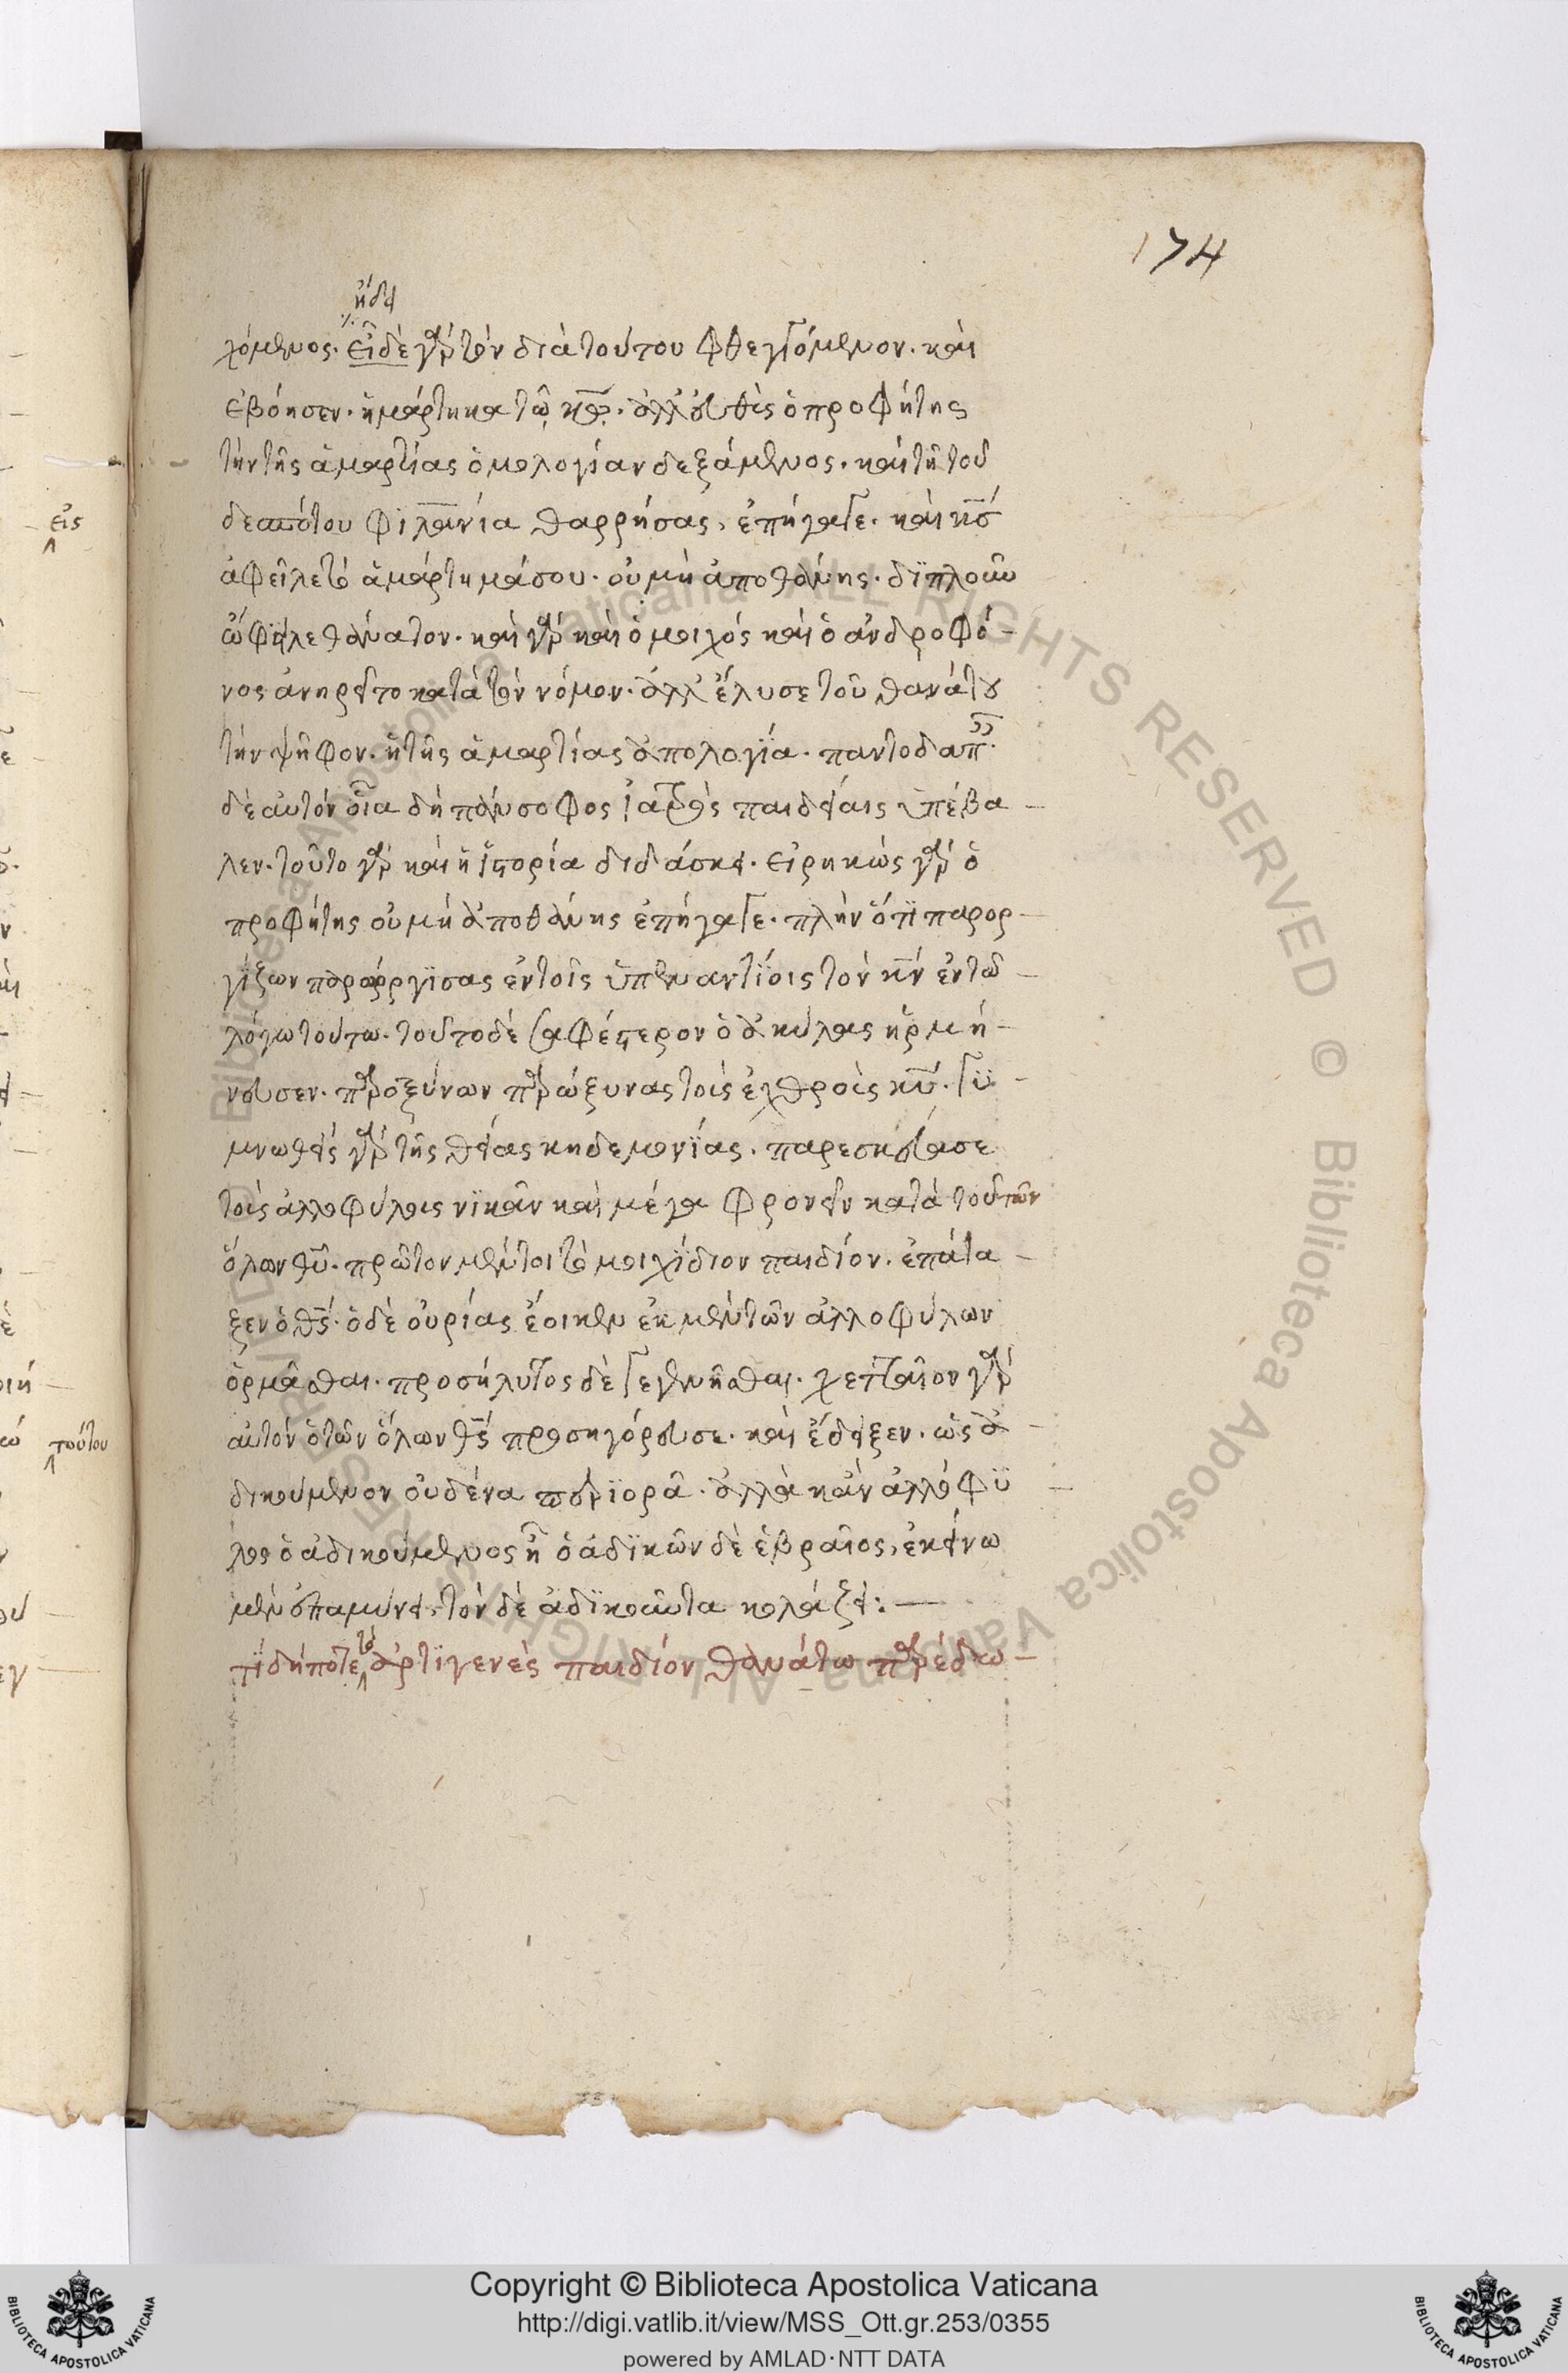 174
ᾔδει
χόμενος. εἶδε γὰρ τὸν διὰ τούτου φθεγγόμενον. καὶ
ἐβόησεν. ἡμάρτηκα τῷ κω. ἀλλ' εὐθὺς ὁ προφήτης
τὴν τῆς ἁμαρτίας ὁμολογίαν δεξάμενος. καὶ τῆ τοῦ
δεσπότου φιλανία θαρρήσας, ἐπήγαγε. καὶ κς
ἀφεῖλε τὸ ἁμάρτημά σου. οὐ μὴ ἀποθάνης. διπλοῦν
ὤφειλε θάνατον. καὶ γὰρ καὶ ὁ μοιχὸς καὶ ὁ ἀνδροφό-
νος ἀνηρεῖτο κατὰ τὸν νόμον. ἀλλ' ἔλυσε τοῦ θανάτου
τὴν ψῆφον. ἡ τῆς ἁμαρτίας ἀπολογία. παντοδαπ
δὲ αὐτὸν οἷα δὴ πάνσοφος ἰατρὸς παιδείαις ὑπέβα-
λεν. τοῦτο γὰρ καὶ ἡ ἱστορία διδάσκει. εἰρηκὼς γὰρ ὁ
προφήτης οὐ μὴ ἀποθάνης ἐπήγαγε. πλὴν ὅτι παρορ-
γίζων παρώργισας ἐν τοῖς ὑπεναντίοις τὸν κν ἐν τῶ
λόγω τούτω. τοῦτο δὲ σαφέστερον ὁ ἀκύλας ἡρμή-
νευσεν. παροξύνων παρώξυνας τοὺς ἐχθροὺς κυ. γυ-
μνωθεὶς γὰρ τῆς θείας κηδεμονίας. παρεσκεύασε
τοὺς ἀλλοφύλους νικᾶν καὶ μέγα φρονεῖν κατὰ τοῦ τῶν
ὅλων θυ. πρῶτον μέντοι τὸ μοιχίδιον παιδίον. ἐπάτα-
ξεν ὁ θς. ὁ δὲ οὐρίας ἔοικεν ἐκ μὲν τῶν ἀλλοφύλων
ὁρμᾶσθαι. προσήλυτος δὲ γεγενῆσθαι. χετταῖον γὰρ
αὐτὸν ὁ τῶν ὅλων θς προσηγόρευσε. καὶ ἔδειξεν. ὡς ἀ-
δικούμενον οὐδένα περιορᾶ. ἀλλὰ κἂν ἀλλόφυ-
λος ὁ ἀδικούμενος ἦ ὁ ἀδικῶν δὲ ἑβραῖος, ἐκείνω
μὲν ἐπαμύνει, τὸν δὲ ἀδικοῦντα κολάζει:—
τί δήποτε τὸ ἀρτιγενὲς παιδίον θανάτω παρέδω-
εἰς
τούτου
Copyright © Biblioteca Apostolica Vaticana
http://digi.vatlib.it/view/MSS_Ott.gr.253/0355
powered by AMLAD·NTT DATA